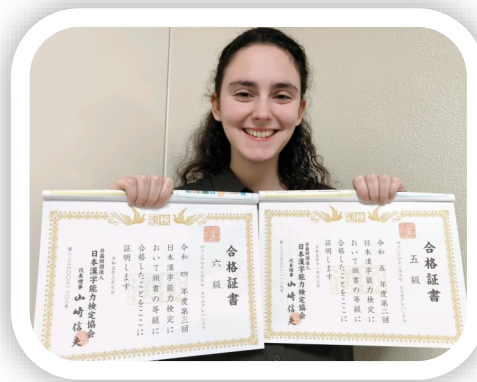 漢検
合格証書
六級
令和四年度第三回
日本漢字能力検定に
おいて頭書の等級に
合格したことをここに
証明します
公益財団法人
日本漢字能力検定協会
代表理事 山崎信夫
漢検
合格証書
五級
令和五年度第二回
日本漢字能力検定に
おいて頭書の等級に
合格したことをここに
証明します
公益財団法人
日本漢字能力検定協会
代表理事 山崎信夫